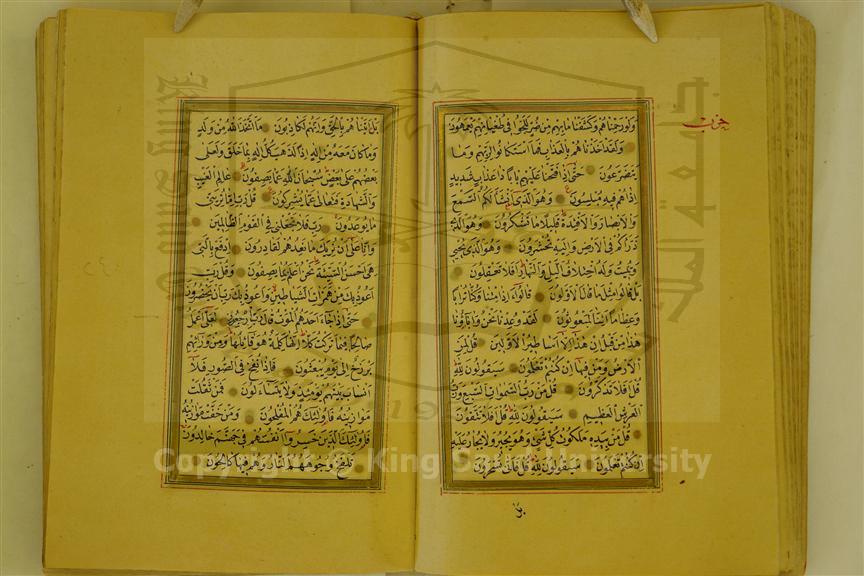 حزب
ولو رحمناهم وكشفنا ما بهم من ضر للجوا في طغيانهم يعمهون
ولقد اخذناهم بالعذاب فما استكانوا لربهم وما
يتضرعون حتى اذا فتحنا عليهم بابا ذا عذاب شديد
اذا هم فيه مبلسون وهو الذي انشأ لكم السمع
والابصار والافئدة قليلا ما تشكرون وهو الذي
ذرأكم في الارض واليه تحشرون وهو الذي يحيي
ويميت وله اختلاف الليل والنهار افلا تعقلون
بل قالوا مثل ما قال الاولون قالوا ءاذا متنا وكنا ترابا
وعظاما ائنا لمبعوثون لقد وعدنا نحن وآباؤنا
هذا من قبل ان هذا الا اساطير الاولين قل لمن
الارض ومن فيها ان كنتم تعلمون سيقولون لله
قل افلا تذكرون قل من رب السموات السبع ورب
العرش العظيم سيقولون لله قل افلا تتقون
قل من بيده ملكوت كل شيء وهو يجير ولا يجار عليه
ان كنتم تعلمون سيقولون لله قل فانى تسحرون
بل
بل اتيناهم بالحق وانهم لكاذبون ما اتخذ الله من ولد
وما كان معه من اله اذا لذهب كل اله بما خلق ولعلى
بعضهم على بعض سبحان الله عما يصفون عالم الغيب
والشهادة فتعالى عما يشركون قل رب اما تريني
ما يوعدون رب فلا تجعلني في القوم الظالمين
وانا على ان نريك ما نعدهم لقادرون ادفع بالتي
هي احسن السيئة نحن اعلم بما يصفون وقل رب
اعوذ بك من همزات الشياطين واعوذ بك رب ان يحضرون
حتى اذا جاء احدهم الموت قال رب ارجعون لعلي اعمل
صالحا فيما تركت كلا انها كلمة هو قائلها ومن ورائهم
برزخ الى يوم يبعثون فاذا نفخ في الصور فلا
انساب بينهم يومئذ ولا يتساءلون فمن ثقلت
موازينه فاولئك هم المفلحون ومن خفت موازينه
فاولئك الذين خسروا انفسهم في جهنم خالدون
تلفح وجوههم النار وهم فيها كالحون
جامعة الملك سعود
Copyright © King Saud University